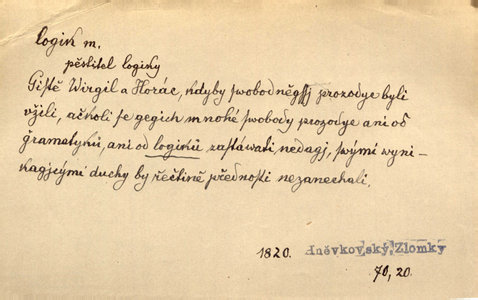 logik m.
pěstitel logiky
Gistě Wirgil a Horác, kdyby swobodněgssj prozodye byli
vžili, ačkoli se gegich mnohé swobody prozodye ani od
gramatyků, ani od logiků zastáwati nedagj, swými wyni-
kagjcými duchy by řečtině přednosti nezanechali,
1820. Hněvkovský, Zlomky
70, 20.